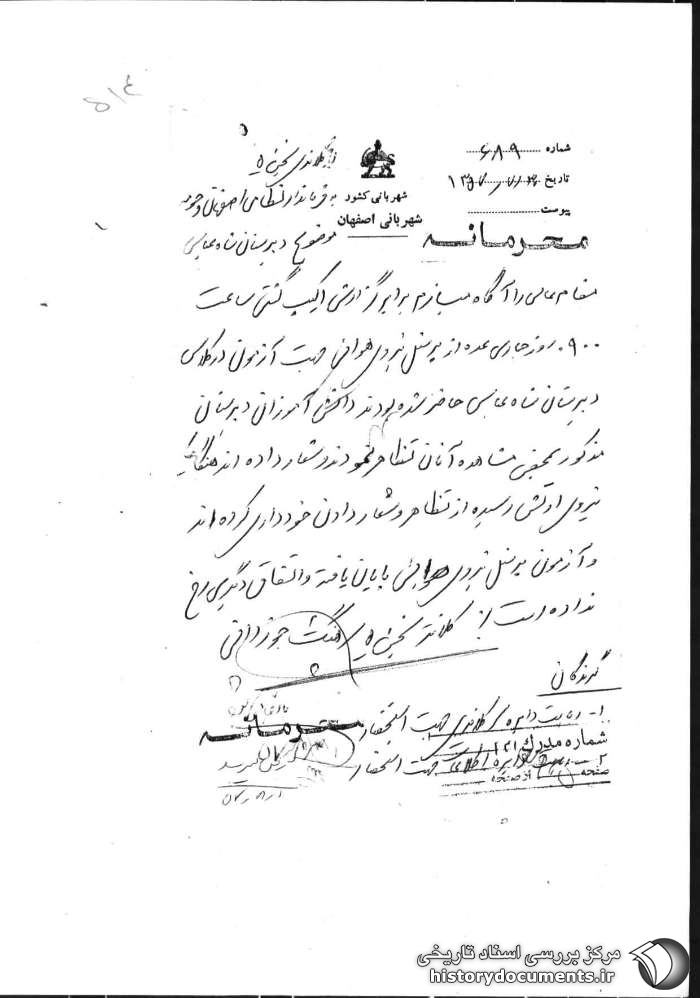 شماره ۶۸۹
تاریخ ۱۳۵۷
پیوست
محرمانه
شهربانی کشور
شهربانی اصفهان
از کلانتری بخش ۵
به فرماندار نظامی اصفهان و حومه
موضوع دبیرستان شاه عباس
مقام عالی را آگاه میسازم برابر گزارش اکیپ گشتی ساعت
۰۹۰۰ روز جاری عده از پرسنل نیروی هوائی جهت آزمون در کلاس
دبیرستان شاه عباس حاضر شده بودند دانش آموزان دبیرستان
مذکور بمحض مشاهده آنان تظاهر نمودند و شعار داده اند هنگامیکه
نیروی ارتش رسیده از تظاهر و شعار دادن خودداری کرده اند
و آزمون پرسنل نیروی هوائی پایان یافته و اتفاق دیگری رخ
نداده است
کلانتر بخش ۵ سرهنگ جوزدانی
گیرندگان
۱- ریاست دایره کلانتری جهت استحضار
محرمانه
شماره مدرک ۱۲۱
۲- دایره اطلاعات جهت استحضار
صفحه از صفحه
مرکز بررسی اسناد تاریخی
historydocuments.ir